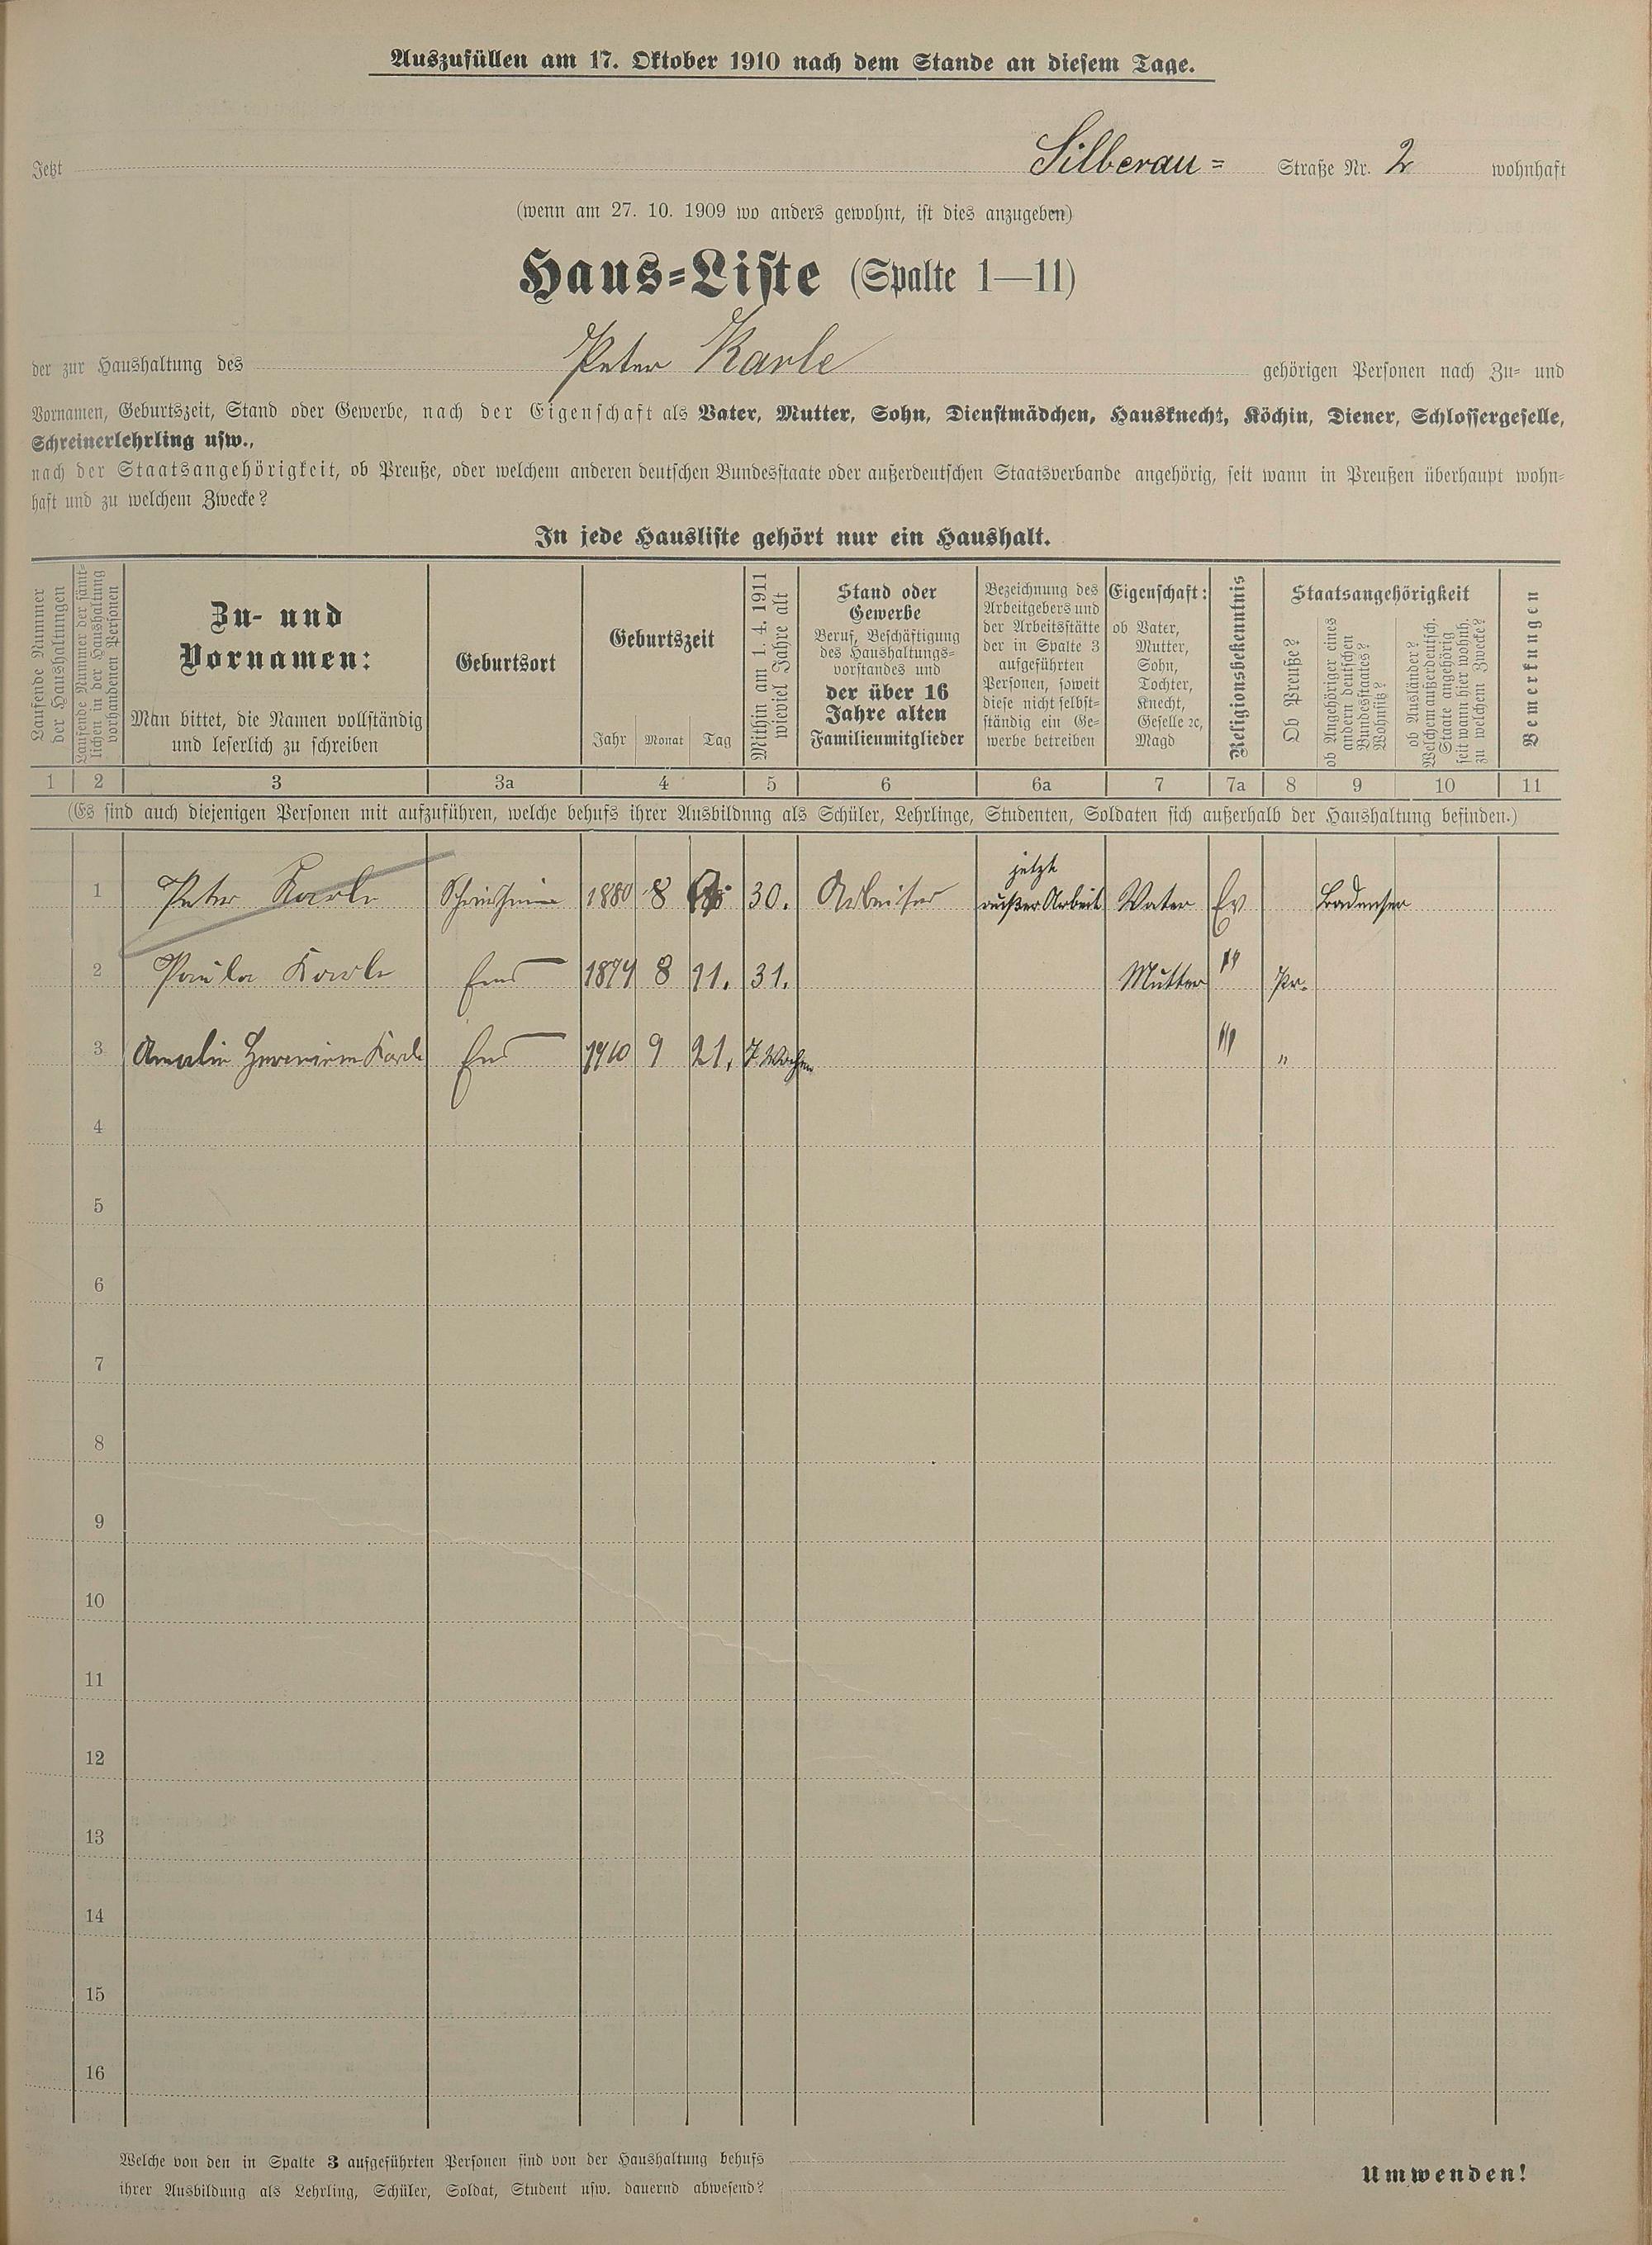 Auszufüllen am 17. Oktober 1910 nach dem Stande an diesem Tage.
Jetzt Silberau= Straße Nr. 2 wohnhaft
(wenn am 27. 10. 1909 wo anders gewohnt, ist dies anzugeben)
Haus=Liste (Spalte 1—11)
der zur Haushaltung des Peter Karle gehörigen Personen nach Zu= und
Vornamen, Geburtszeit, Stand oder Gewerbe, nach der Eigenschaft als Vater, Mutter, Sohn, Dienstmädchen, Hausknecht, Köchin, Diener, Schlossergeselle,
Schreinerlehrling usw.,
nach der Staatsangehörigkeit, ob Preuße, oder welchem anderen deutschen Bundesstaate oder außerdeutschen Staatsverbande angehörig, seit wann in Preußen überhaupt wohn=
haft und zu welchem Zwecke?
In jede Hausliste gehört nur ein Haushalt.
Laufende Nummer
der Haushaltungen
Laufende Nummer der sämt=
lichen in der Haushaltung
vorhandenen Personen
Zu- und
Vornamen:
Man bittet, die Namen vollständig
und leserlich zu schreiben
Geburtsort
Geburtszeit
Jahr Monat Tag
Mithin am 1. 4. 1911
wieviel Jahre alt
Stand oder
Gewerbe
Beruf, Beschäftigung
des Haushaltungs=
vorstandes und
der über 16
Jahre alten
Familienmitglieder
Bezeichnung des
Arbeitgebers und
der Arbeitsstätte
der in Spalte 3
aufgeführten
Personen, soweit
diese nicht selbst=
ständig ein Ge=
werbe betreiben
Eigenschaft:
ob Vater,
Mutter,
Sohn,
Tochter,
Knecht,
Geselle ꝛc,
Magd
Religionsbekenntnis
Staatsangehörigkeit
Ob Preuße?
ob Angehöriger eines
andern deutschen
Bundesstaates?
Wohnsitz?
ob Ausländer?
Welchem außerdeutsch.
Staate angehörig
seit wann hier wohnh.
zu welchem Zwecke?
Bemerkungen
1 2 3 3a 4 5 6 6a 7 7a 8 9 10 11
(Es sind auch diejenigen Personen mit aufzuführen, welche behufs ihrer Ausbildung als Schüler, Lehrlinge, Studenten, Soldaten sich außerhalb der Haushaltung befinden.)
jetzt
1 Peter Karle 1880 8 30. Arbeiter außer Arbeit Vater Ev Badenser
2 Paula Karle Ems 8 11. 31. Mutter " Pr.
3 Amalie Karle Ems 1910 9 21. 7 Wochen " "
4
5
6
7
8
9
10
11
12
13
14
15
16
Welche von den in Spalte 3 aufgeführten Personen sind von der Haushaltung behufs
ihrer Ausbildung als Lehrling, Schüler, Soldat, Student usw. dauernd abwesend?
Umwenden!